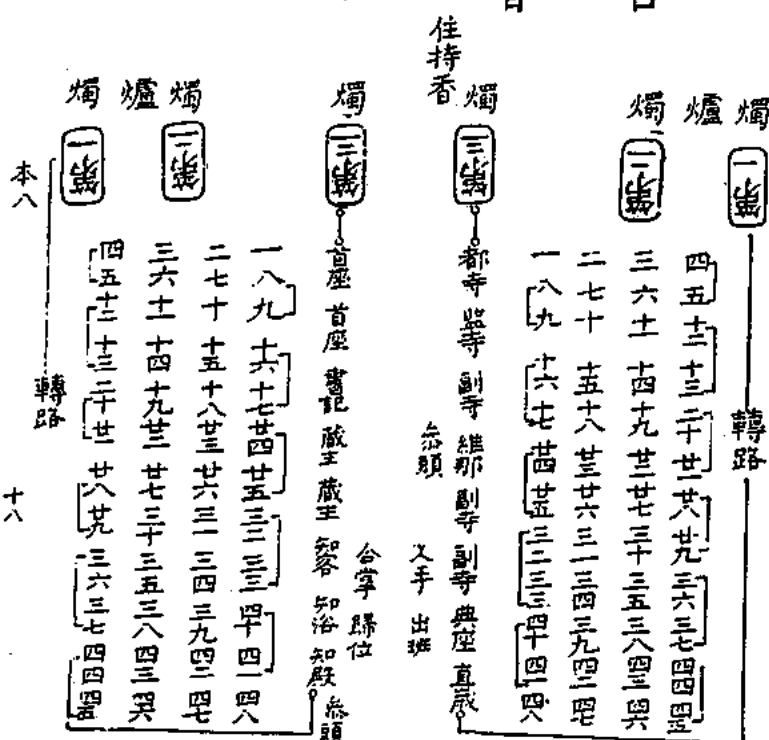 燭 爐 燭
第一
第二
轉路
四 五 十二 十三 二十 廿一 廿八 廿九 三六 三七 四四 四五
三 六 十一 十四 十九 廿二 廿七 三十 三五 三八 四三 四六
二 七 十 十五 十八 廿三 廿六 三一 三四 三九 四二 四七
一 八 九 十六 十七 廿四 廿五 三二 三三 四十 四一 四八
住持香
燭
第三
都寺 監寺 副寺 維那 副寺 副寺 典座 直歲
叅頭
叉手 出班
合掌 歸位
燭
第三
首座 首座 書記 藏主 藏主 知客 知浴 知殿 叅頭
燭 爐 燭
第二
第一
一 八 九 十六 十七 廿四 廿五 三二 三三 四十 四一 四八
二 七 十 十五 十八 廿三 廿六 三一 三四 三九 四二 四七
三 六 十一 十四 十九 廿二 廿七 三十 三五 三八 四三 四六
四 五 十二 十三 二十 廿一 廿八 廿九 三六 三七 四四 四五
轉路
本八
十八